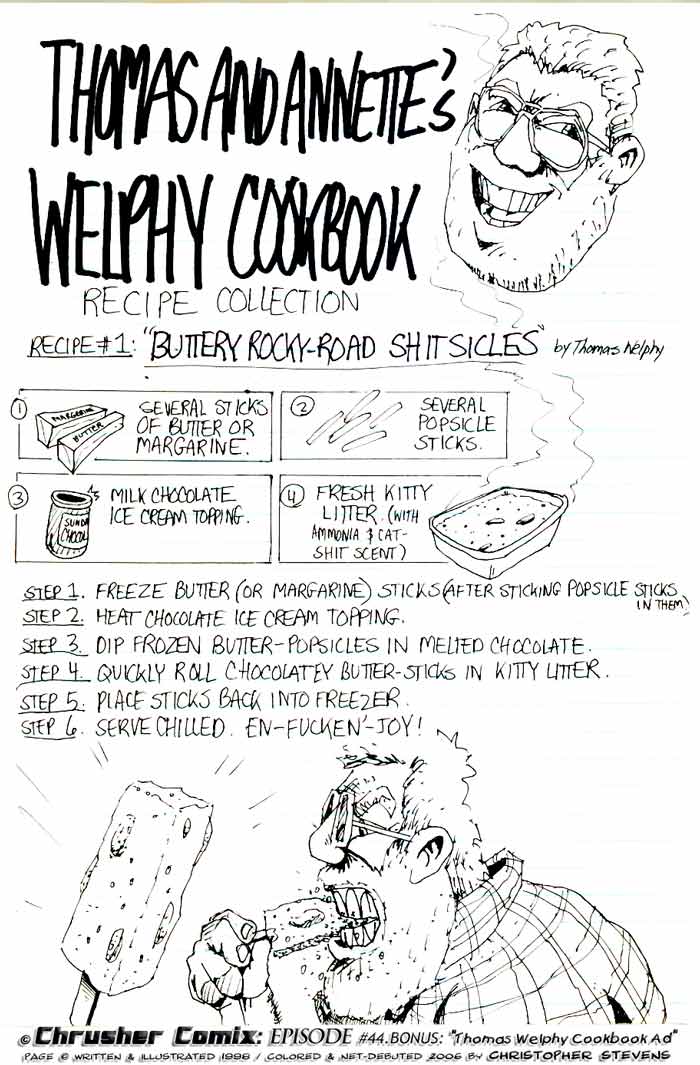 THOMAS AND ANNETTE'S
WELPHY COOKBOOK
RECIPE COLLECTION
RECIPE #1: "BUTTERY ROCKY-ROAD SHITSICLES" by Thomas Welphy
1
MARGARINE
BUTTER
SEVERAL STICKS
OF BUTTER OR
MARGARINE.
2
SEVERAL
POPSICLE
STICKS.
3
SUNDA
CHOCOL
MILK CHOCOLATE
ICE CREAM TOPPING.
4
FRESH KITTY
LITTER. (WITH
AMMONIA & CAT-
SHIT SCENT)
STEP 1. FREEZE BUTTER (OR MARGARINE) STICKS (AFTER STICKING POPSICLE STICKS
IN THEM)
STEP 2. HEAT CHOCOLATE ICE CREAM TOPPING.
STEP 3. DIP FROZEN BUTTER-POPSICLES IN MELTED CHOCOLATE.
STEP 4. QUICKLY ROLL CHOCOLATEY BUTTER-STICKS IN KITTY LITTER.
STEP 5. PLACE STICKS BACK INTO FREEZER.
STEP 6. SERVE CHILLED. EN-FUCKEN'-JOY!
© Chrusher Comix: EPISODE #44.BONUS: "Thomas Welphy Cookbook Ad"
PAGE © WRITTEN & ILLUSTRATED 1998 / COLORED & NET-DEBUTED 2006 BY CHRISTOPHER STEVENS